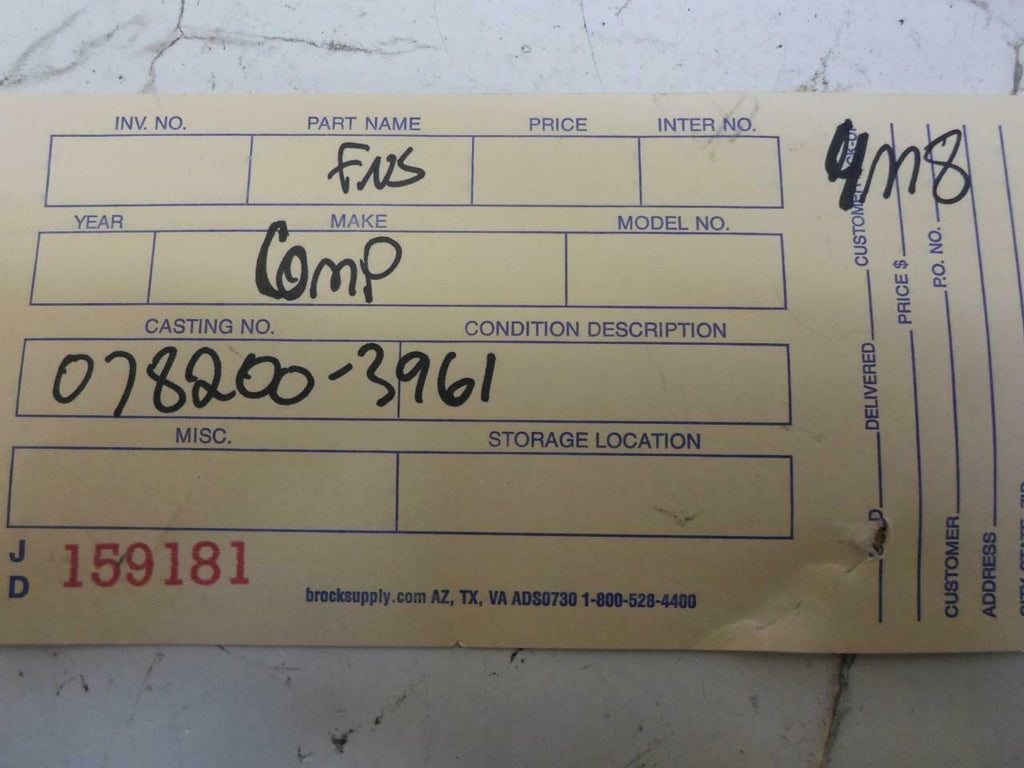 INV. NO. PART NAME PRICE INTER NO.
FNS
YEAR MAKE MODEL NO.
Comp
CASTING NO. CONDITION DESCRIPTION
078200-3961
MISC. STORAGE LOCATION
J
D
159181
brocksupply.com AZ, TX, VA ADS0730 1-800-528-4400
DELIVERED
PRICE $
P.O. NO.
CUSTOMER
ADDRESS